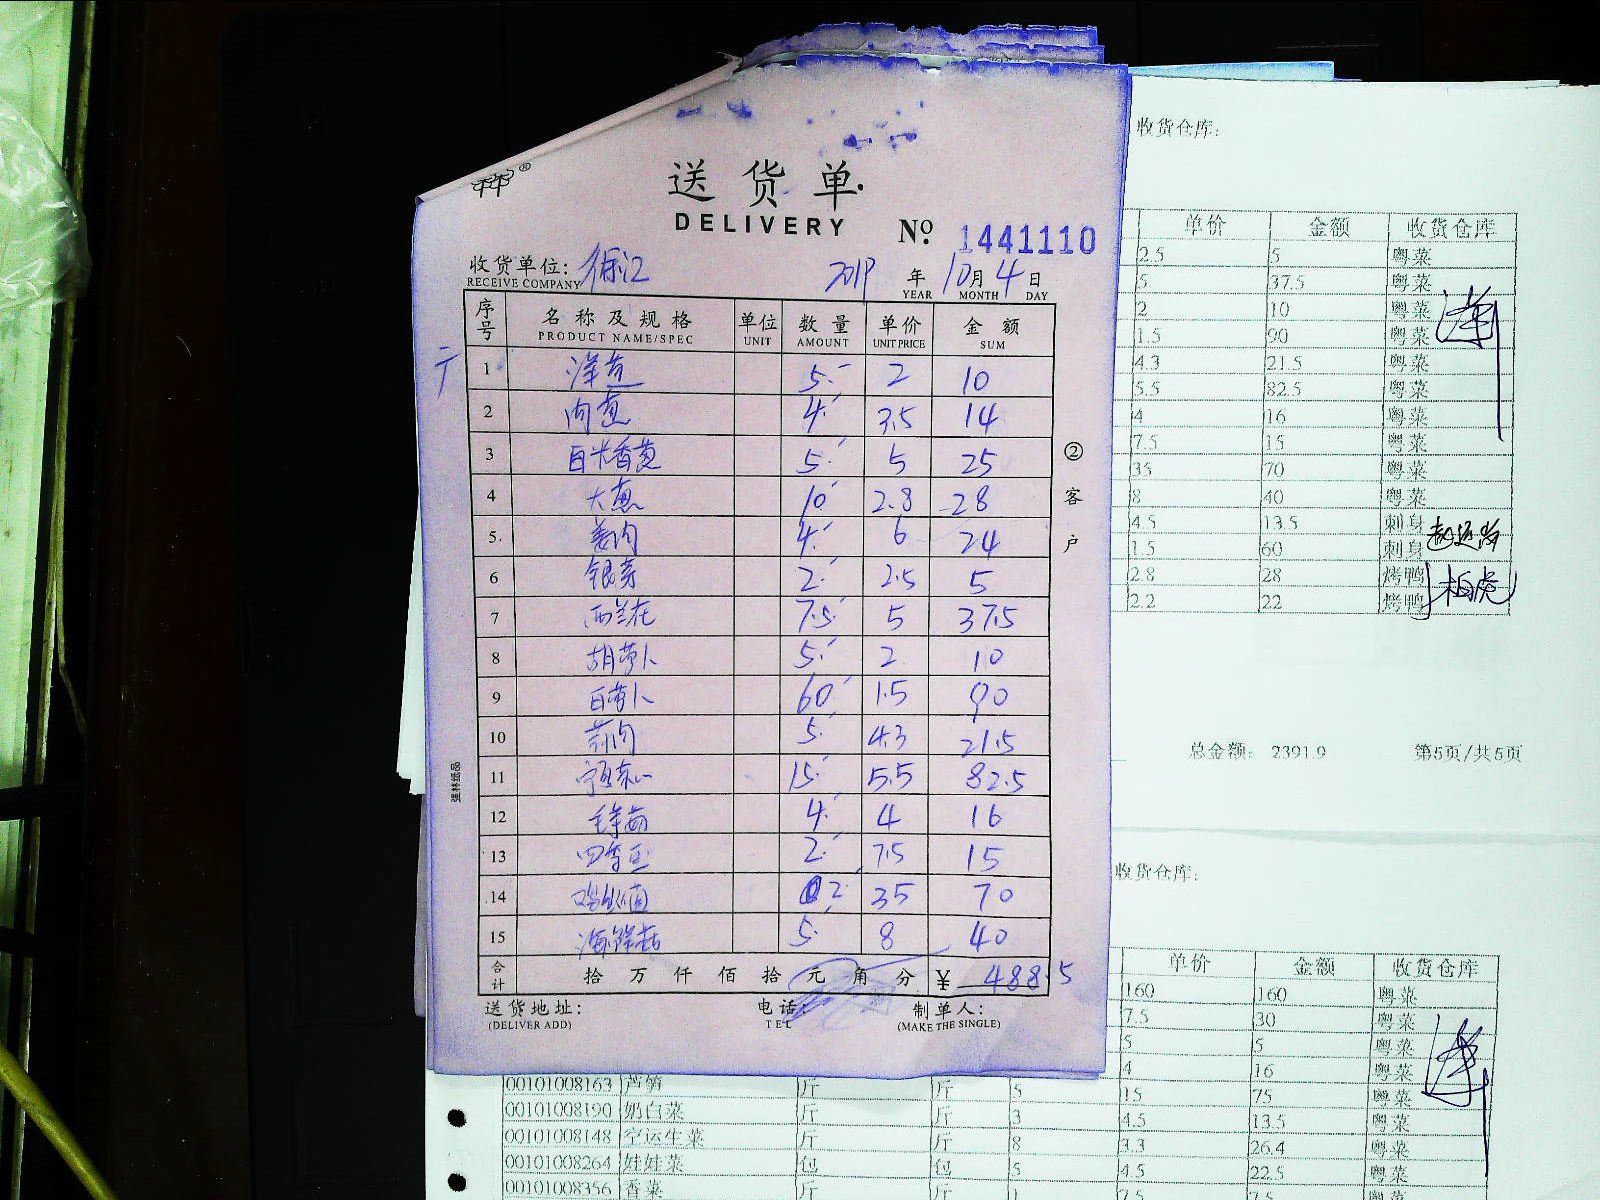 收货仓库:
送货单
DELIVERY
№ 1441110
收货单位: 徐汇 2019 年 10 月 4 日
RECEIVE COMPANY YEAR MONTH DAY
序号 名称及规格 单位 数量 单价 金额
PRODUCT NAME/SPEC UNIT AMOUNT UNIT PRICE SUM
1 洋葱 5 2 10
2 肉葱 4 3.5 14
3 百米香葱 5 5 25
4 大葱 10 2.8 28
5 姜肉 4 6 24
6 银芽 2 2.5 5
7 西兰花 7.5 5 37.5
8 胡萝卜 5 2 10
9 白萝卜 60 1.5 90
10 5 4.3 21.5
11 15 5.5 82.5
12 4 4 16
13 四季豆 2 7.5 15
14 2 35 70
15 海鲜菇 5 8 40
合计 拾 万 仟 佰 拾 元 角 分 ¥ 488.5
送货地址: 电话: 制单人:
(DELIVER ADD) TEL (MAKE THE SINGLE)
②客户
强林纸品
单价 金额 收货仓库
2.5 5 粤菜
5 37.5 粤菜
2 10 粤菜
1.5 90 粤菜
4.3 21.5 粤菜
5.5 82.5 粤菜
4 16 粤菜
7.5 15 粤菜
35 70 粤菜
8 40 粤菜
4.5 13.5 刺身
1.5 60 刺身
2.8 28 烤鸭
2.2 22 烤鸭
柏虎
总金额: 2391.9 第5页/共5页
收货仓库:
单价 金额 收货仓库
160 160 粤菜
7.5 30 粤菜
5 5 粤菜
4 16 粤菜
00101008163 芦笋 斤 斤 5 15 75 粤菜
00101008190 奶白菜 斤 斤 3 4.5 13.5 粤菜
00101008148 空运生菜 斤 斤 8 3.3 26.4 粤菜
00101008264 娃娃菜 包 包 5 4.5 22.5 粤菜
00101008356 香菜 斤 斤 1 7.5 7.5 粤菜